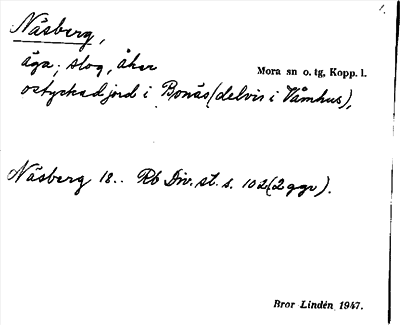 1.
Näsberg,
äga; slog, åker
Mora sn o. tg, Kopp. l.
ostyckad jord i Bonäs (delvis i Våmhus),
Näsberg 18.. Rb Div. st. s. 102 (2 ggr).
Bror Lindén 1947.